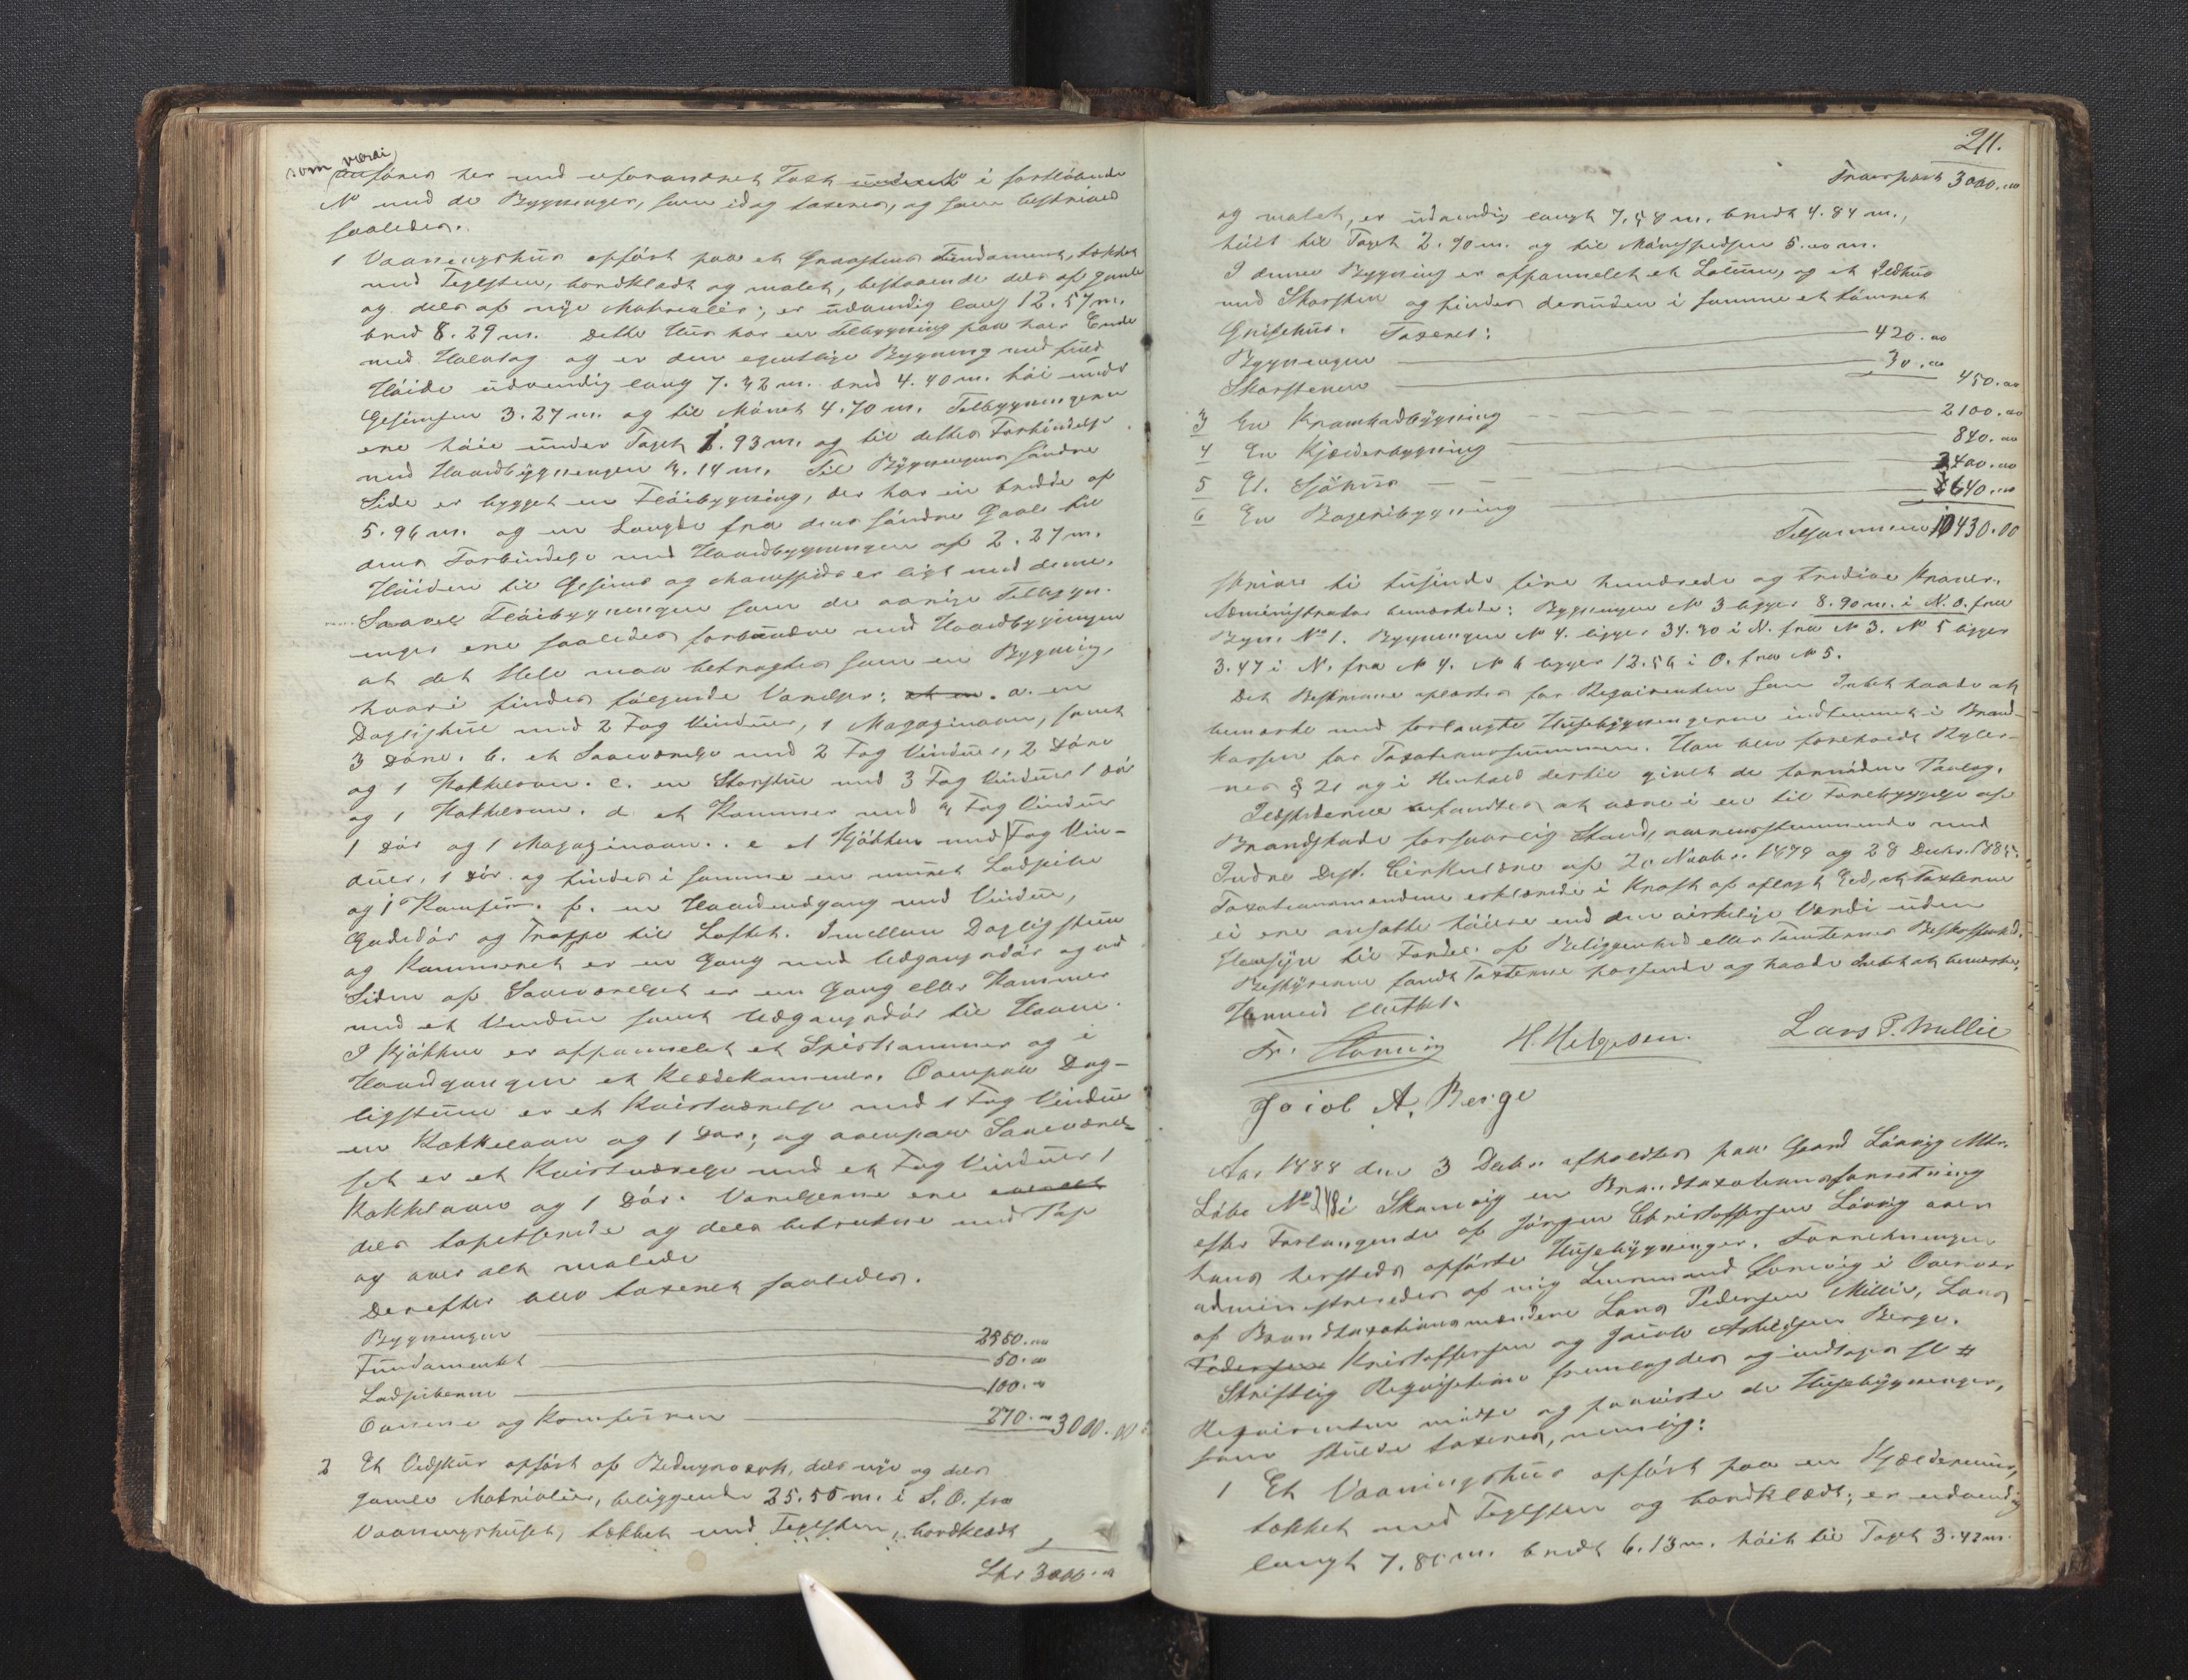 som værdi
anføres her med uforandret Taxt i fortløbende
No med de Bygninger, som idag taxeres, og som beskrives
saaledes.
1 Vaaningshus opført paa et Graasteens Fundament, tækket
med Teglsten, bordklædt og malet, bestaaende dels af gamle
og dels af nye Materialier; er udvendig lang 12.57 m.
bred 8.29 m. Dette Hus har en Tilbygning paa hver Ende
med Halvtag og er den egentlige Bygning med fuld
Høide udvendig lang 7.42 m. bred 4.40 m. høi under
Gesimsen 3.27 m. og til Mønet 4.70 m. Tilbygningerne
ere høie under Taget 1.93 m. og til dettes Forbindelse
med Hovedbygningen 3.14 m. Til Bygningens søndre
Side er bygget en Fløibygning, der har en bredde af
5.96 m. og en Længde fra dens søndre Gavl til
dens Forbindelse med Hovedbygningen af 2.27 m.
Høiden til Gesims og Mønespids er ligt med denne.
Saavel Fløibygningen som de øvrige Tilbygn-
inger ere saaledes forbundne med Hovedbygningen
at det Hele maa betragtes som en Bygning,
hvori findes følgende Værelser: a. en
Dagligstue med 2 Fag Vinduer, 1 Magazinovn, samt
3 Døre. b. et Soveværelse med 2 Fag Vinduer, 2 Døre
og 1 Kakkelovn. c. en Storstue med 3 Fag Vinduer 1 Dør
og 1 Kakkelovn. d. et Kammer med 2 Fag Vinduer
1 Dør og 1 Magazinovn. e. et Kjøkken med 1 Fag Vin-
duer, 1 Dør og findes i samme en muret Ladpibe
og 1 Komfur. f. en Hovedindgang med Vindue,
Gadedør og Trappe til Loftet. Imellem Dagligstuen
og Kammeret er en Gang med Udgangsdør og ved
Siden af Soveværelset er en Gang eller Kammer
med et Vindue samt Udgangsdør til Haven.
I Kjøkken er afpannelet et Spiskammer og i
Hovedgangen et Klædekammer. Ovenpaa Dag-
ligstuen er et Kvistværelse med 1 Fag Vindue
en Kakkelovn og 1 Dør; og ovenpaa Soveværel-
set er et Kvistværelse med et Fag Vinduer 1
Kakkelovn og 1 Dør. Værelserne ere
dels tapetserede og dels betrukne med Pap
og over alt malede
Derefter blev taxeret saaledes.
Bygningen 2580.00
Fundamentet 50.00
Ladpiberne 100.00
Ovnene og Komfuren 270.00 3000.00
2 Et Vedskur opført af Bindingsværk, dels nye og dels
gamle Materialier, beliggende 25.55 m. i S.O. fra
Vaaningshuset, tækket med Teglsten, bordklædt
Lhr 3000.00
211.
Transport 3000.00
og malet, er udvendig langt 7.58 m. bredt 4.84 m.,
høit til Taget 2.70 m. og til Mønespidsen 5.00 m.
I denne Bygning er afpannelet et Lokum, og et Ildhus
med Skorsten og findes desuden i samme et tømret
Grisehus. Taxeret:
Bygningen 420.00
Skorstenen 30.00 450.00
3 En Kramhadbygning 2100.00
4 En Kjælderbygning 840.00
5 Et Sjøhus 2400.00
6 En Bageribygning 1640.00
Tilsammen 10430.00
skrive ti tusinde fire hundrede og tredive Kroner.
Administrator bemærkede: Bygningen No 3 ligger 8.90 m. i N.O. fra
Bygn. No 1. Bygningen No 4 ligger 34.30 i N. fra No 3. No 5 ligger
3.47 i N. fra No 4. No 6 ligger 12.56 i O. fra No 5.
Det Beskrevne oplæstes for Requirenten som Intet havde at
bemærke med forlangte Husebygningerne indtemmet i Brand-
kassen for Taxationssummen. Han blev foreholdt Regler-
nes § 21 og i Henhold dertil givet de fornødne Paalæg.
Ildstederne befandtes at være i en til Forebyggelse af
Brandskade forsvarlig Stand, overensstemmende med
Indre Dept. Cirkulære af 20 Novbr. 1879 og 28 Decbr. 1885.
Taxationsmændene erklærede i Kraft af aflagt Eed, at Taxterne
ei ere ansatte høiere end den virkelige Værdi uden
Hensyn til Fordel af Beliggenhed eller Tomternes Beskaffenhed.
Bestyreren fandt Taxterne passende og havde Intet at bemærke.
Hermed sluttet.
Fr. H. Helgesen. Lars P. Millie
Joiol A. Berge
Aar 1888 den 3 Decbr. afholdtes paa Gaard Lønvig Mtr.
Løbe No 248 i Skonvig en Brandtaxationsforretning
efter Forlangende af Jørgen Christoffersen Lønvig over
hans hersteds opførte Husebygninger. Forretningen
administreredes af mig Lensmand i
af Brandtaxationsmændene Lars Pedersen Millie, Lars
Pedersen Kristoffersen og Joiole Askildsen Berge.
Skriftlig Requisition fremlagdes og indtages sl #
Requirenten mødte og paaviste de Husebygninger,
som skulle taxeres, nemlig:
1 Et Vaaningshus opført paa en Kjældermur,
tækket med Teglsten og bordklædt; er udvendig
langt 7.85 m. bredt 6.13 m. høit til Taget 3.42 m.